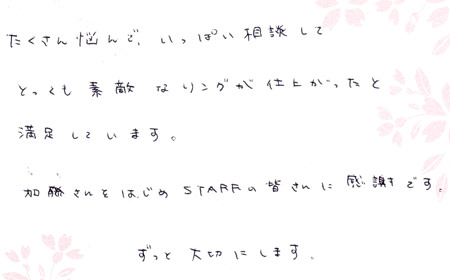 たくさん悩んで、いっぱい相談して
とっても素敵なリングが仕上がったと
満足しています。
加藤さんをはじめSTAFFの皆さんに感謝です。
ずっと大切にします。